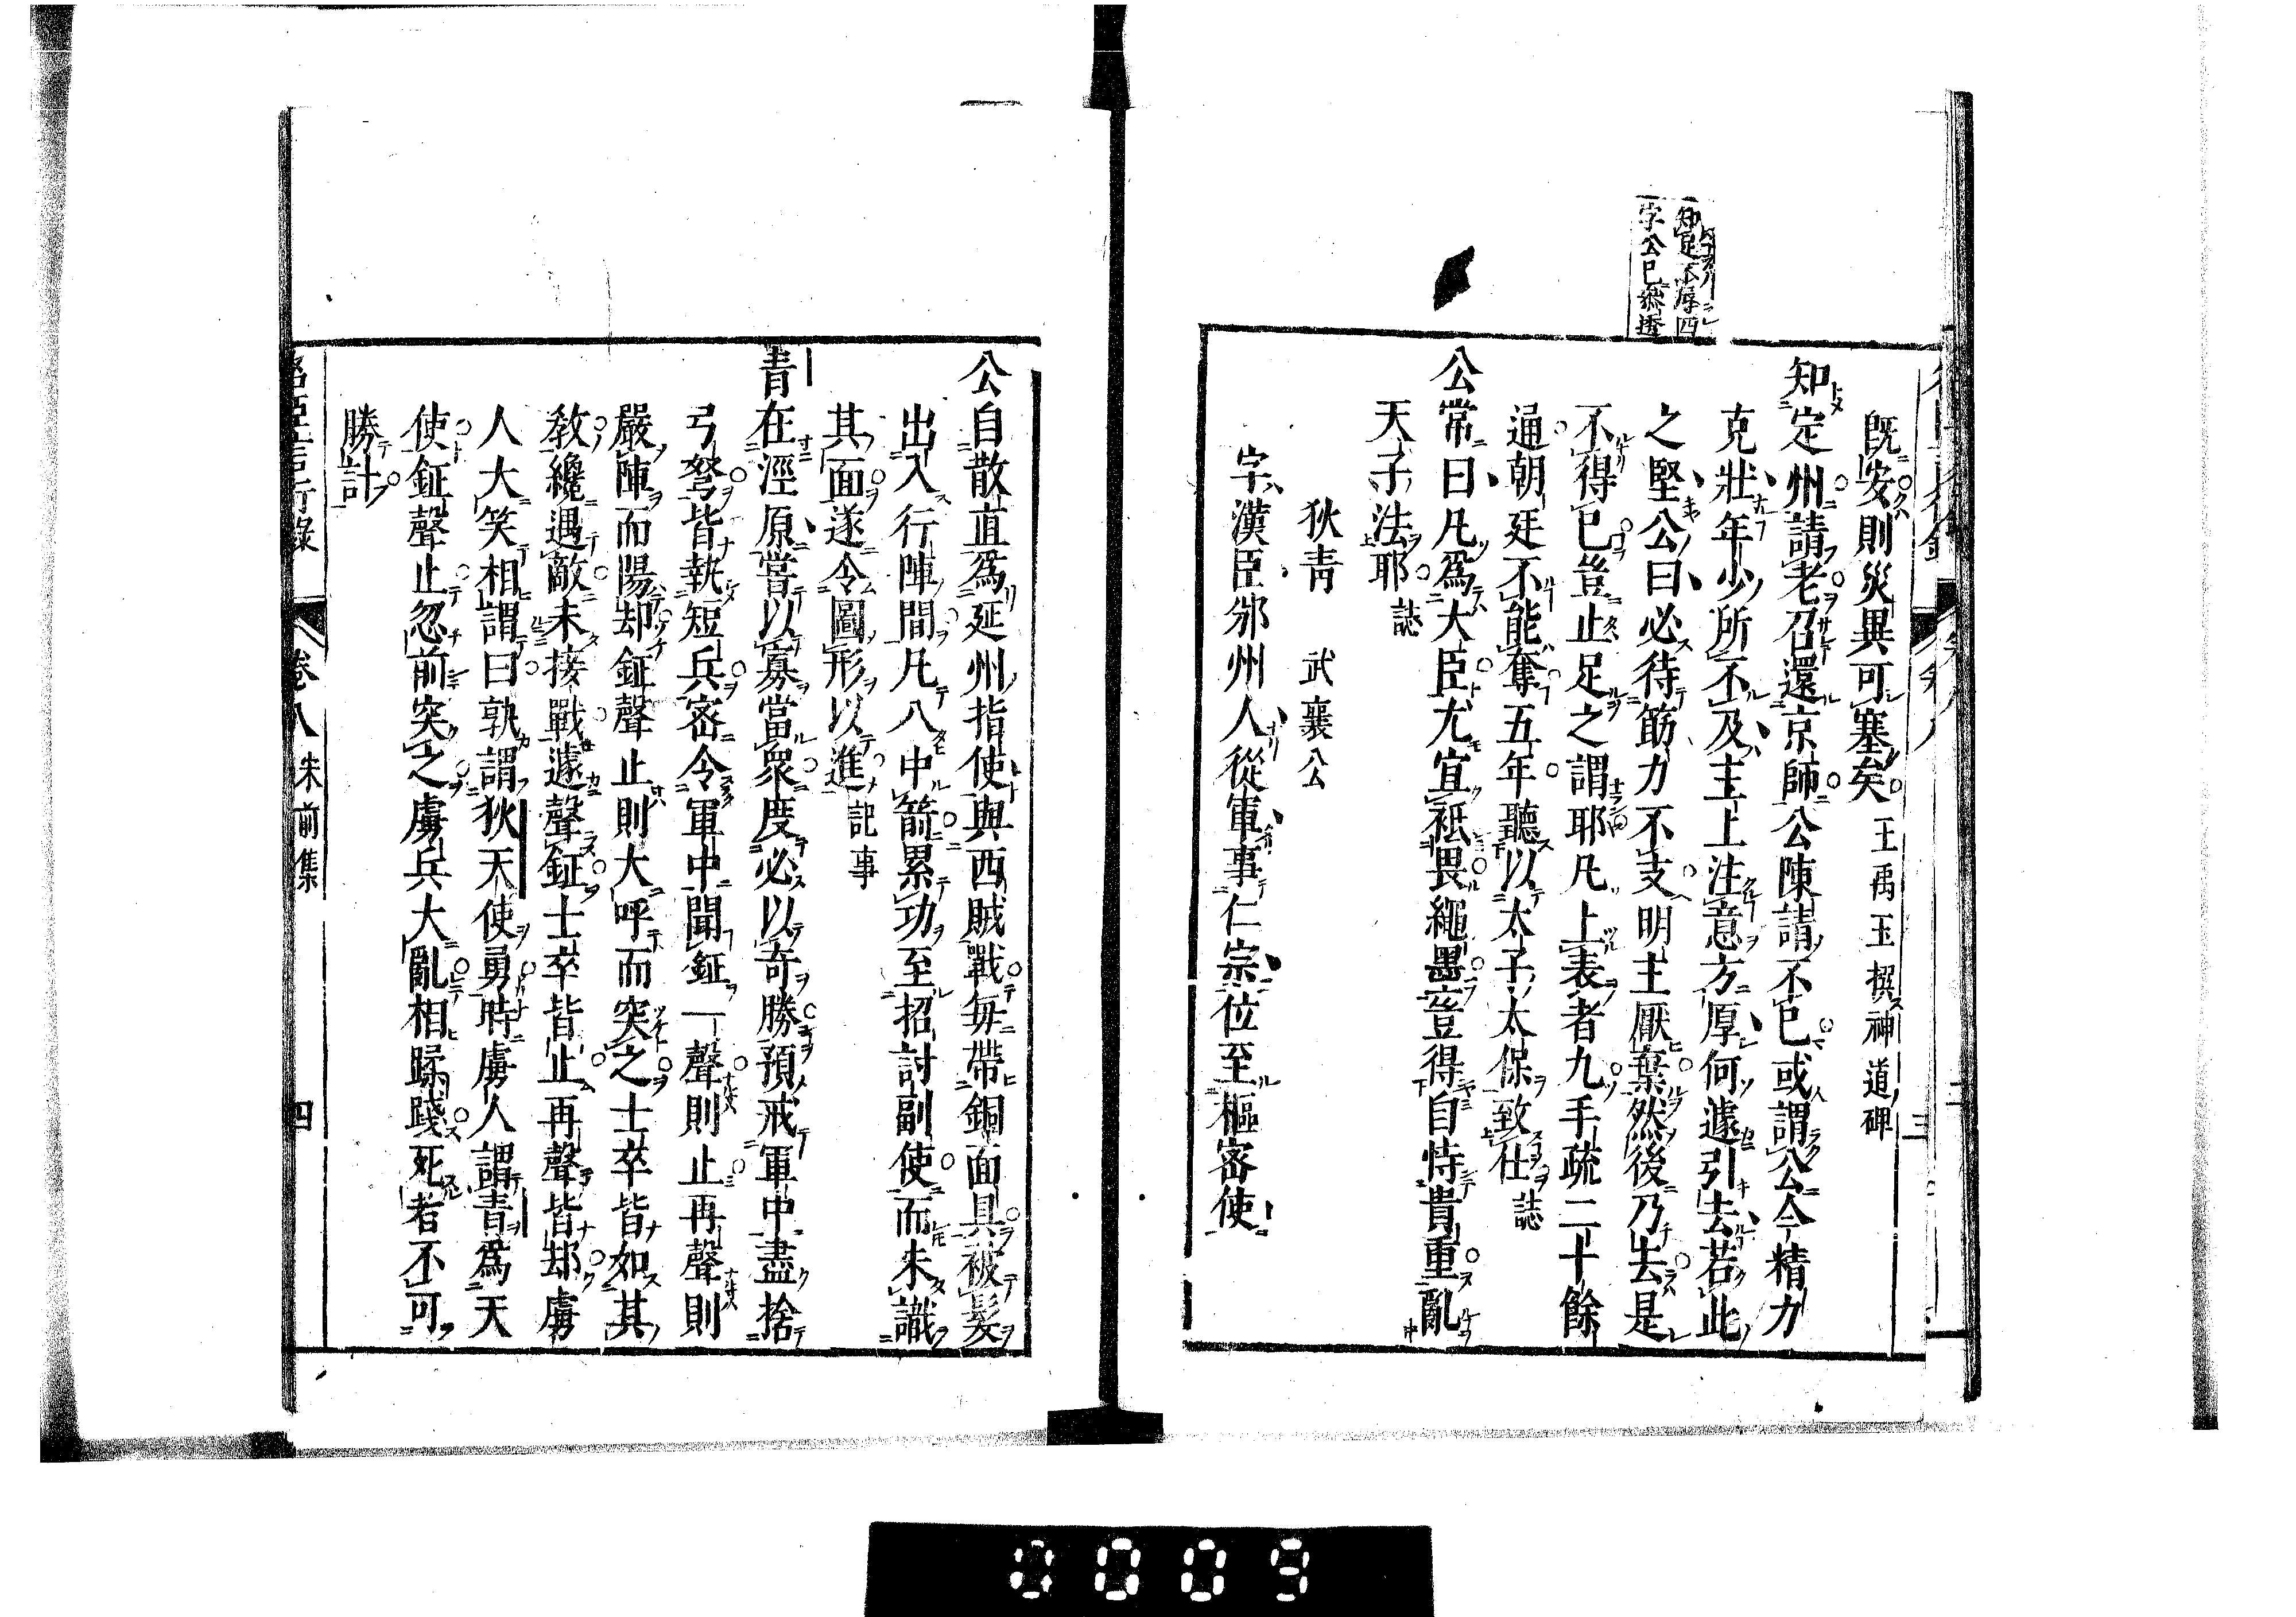 知足不辱四
字公已參透
既安則災異可塞矣王禹玉撰神道碑
知定州請老召還京師公陳請不已或謂公今精力
克壯年少所不及主上注意方厚何遽引去若此
之堅公曰必待筋力不支明主厭棄然後乃去是
不得已豈止足之謂耶凡上表者九手疏二十餘
通朝廷不能奪五年聽以太子太保致仕誌
公常曰凡為大臣尤宜祗畏繩墨豈得自恃貴重亂
天子法耶誌
狄青 武襄公
字漢臣邠州人從軍事仁宗位至樞密使
公自散直為延州指使與西賊戰每帶銅面具被髮
出入行陣間凡八中箭累功至招討副使而未識
其面遂令圖形以進記事
青在涇原嘗以寡當眾度必以奇勝預戒軍中盡捨
弓弩皆執短兵密令軍中聞鉦一聲則止再聲則
嚴陣而陽却鉦聲止則大呼而突之士卒皆如其
教纔遇敵未接戰遽聲鉦士卒皆止再聲皆却虜
人大笑相謂曰孰謂狄天使勇時虜人謂青為天
使鉦聲止忽前突之虜兵大亂相蹂踐死者不可
勝計
名臣言行錄 卷八 朱前集 四